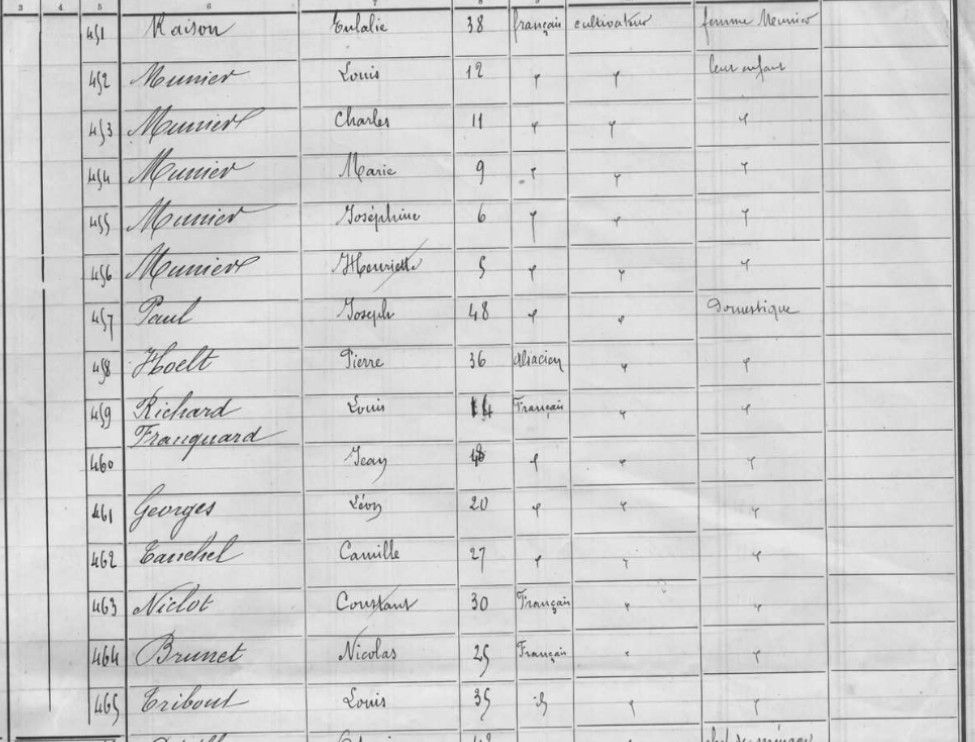 3 4 5 6 7 8 9
451 Raison Eulalie 38 français cultivateur femme Munier
452 Munier Louis 12 〃 〃 leur enfant
453 Munier Charles 11 〃 〃 〃
454 Munier Marie 9 〃 〃 〃
455 Munier Joséphine 6 〃 〃 〃
456 Munier Henriette 5 〃 〃 〃
457 Paul Joseph 48 〃 〃 Domestique
458 Hoelt Pierre 36 alsacien 〃 〃
459 Richard Louis 14 Français 〃 〃
Franquard
460 Jean 〃 〃 〃
461 Georges Léon 20 〃 〃 〃
462 Camille 27 〃 〃 〃
463 Niclot Constant 30 Français 〃 〃
464 Brunet Nicolas 25 Français 〃 〃
465 Tribout Louis 35 id 〃 〃